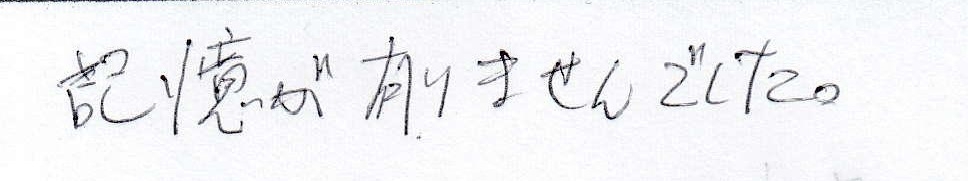 記憶が有りませんでした。